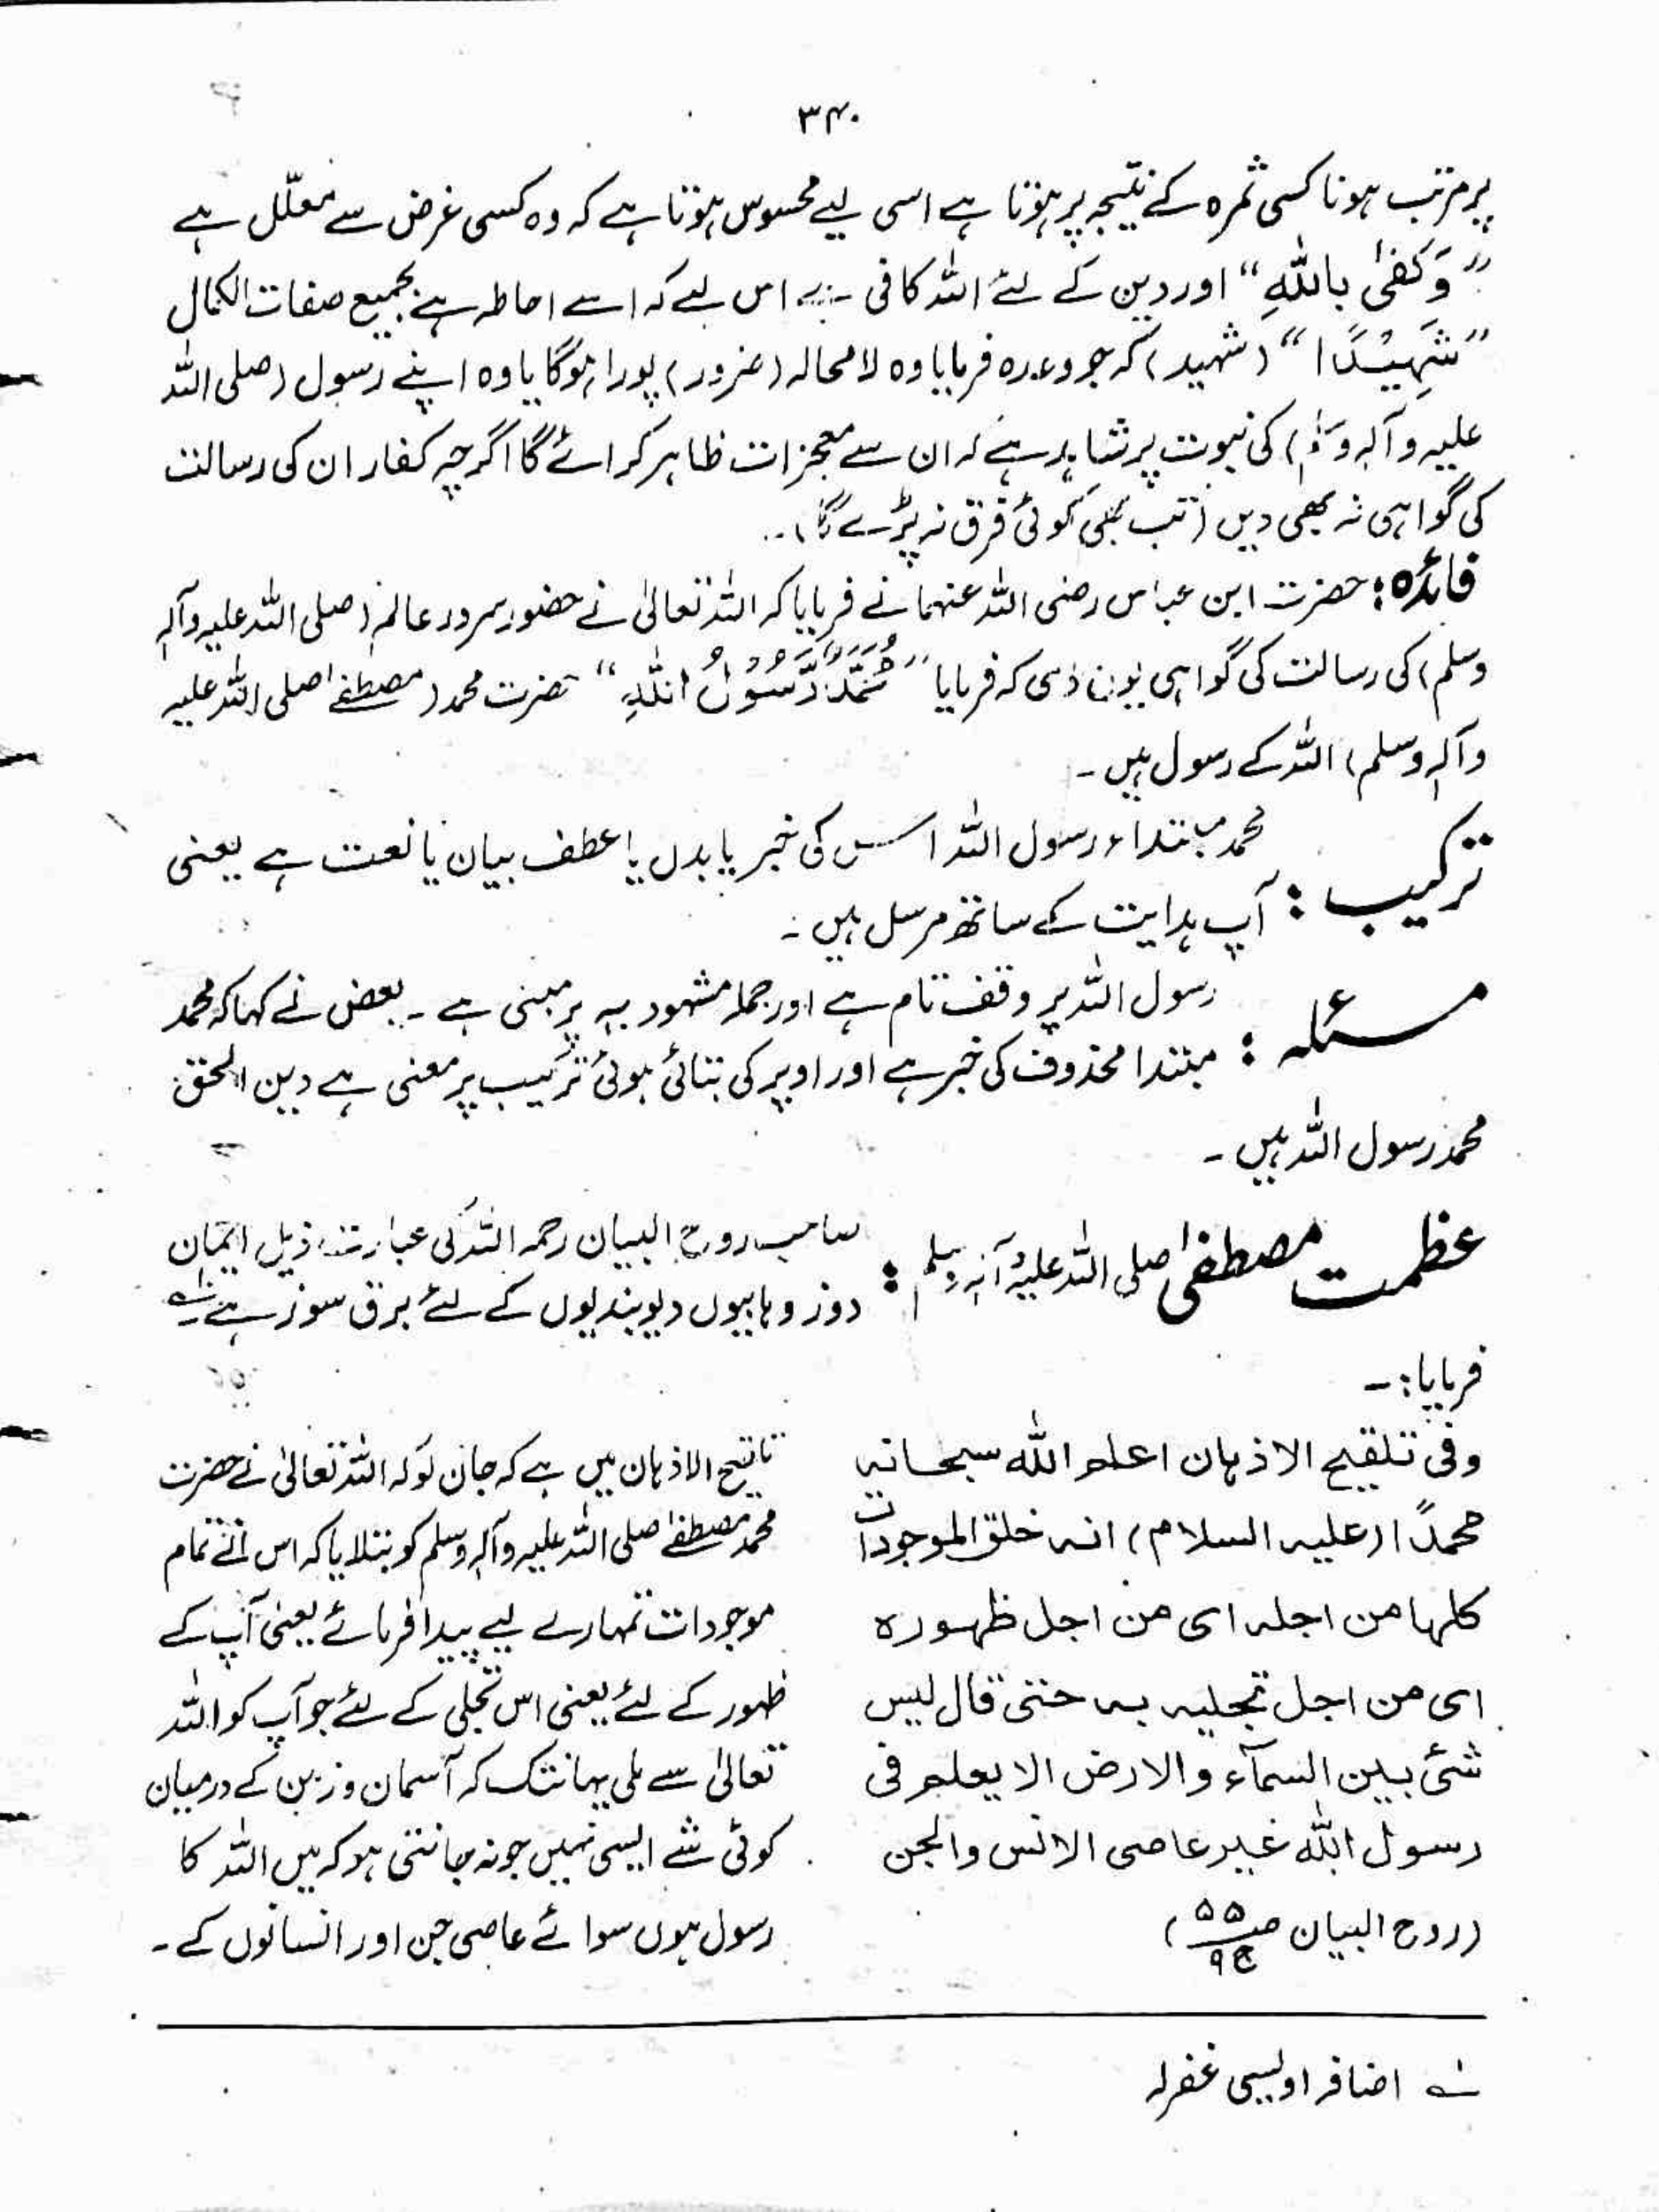 ۳۴۰
پر مرتب ہونا کسی ثمرہ کے نتیجہ پر ہوتا ہے اسی لیے محسوس ہوتا ہے کہ وہ کسی غرض سے معلّل ہے
”وَكَفٰى بِاللّٰهِ“ اور دین کے لئے اللہ کافی ہے اس لیے کہ اسے احاطہ ہے بجمیع صفات الکمال
”شَهِيْدًا“ (شہید) کہ جو وعدہ فرمایا وہ لامحالہ (ضرور) پورا ہوگا یا وہ اپنے رسول (صلی اللہ
علیہ وآلہ وسلم) کی نبوت پر شاہد ہے کہ ان سے معجزات ظاہر کرائے گا اگرچہ کفار ان کی رسالت
کی گواہی نہ بھی دیں (تب بھی کوئی فرق نہ پڑے گا)۔
فائدہ: حضرت ابن عباس رضی اللہ عنہما نے فرمایا کہ اللہ تعالیٰ نے حضور سرور عالم (صلی اللہ علیہ وآلہ
وسلم) کی رسالت کی گواہی یوں دی کہ فرمایا ”مُحَمَّدٌ رَّسُوْلُ اللّٰهِ“ حضرت محمد (مصطفےٰ صلی اللہ علیہ
وآلہ وسلم) اللہ کے رسول ہیں۔
ترکیب : محمد مبتداء رسول اللہ اس کی خبر یا بدل یا عطف بیان یا نعت ہے یعنی
آپ ہدایت کے ساتھ مرسل ہیں۔
مسئلہ : رسول اللہ پر وقف تام ہے اور جملہ مشہود بہ پر مبنی ہے۔ بعض نے کہا کہ محمد
مبتدا محذوف کی خبر ہے اور اوپر کی بتائی ہوئی ترکیب پر معنی ہے دین الحق
محمد رسول اللہ ہیں۔
عظمت مصطفیٰ صلی اللہ علیہ وآلہ وسلم : صاحب روح البیان رحمہ اللہ کی عبارت ذیل ایمان
دوز وہابیوں دیوبندیوں کے لئے برق سوز ہے ؎۱
فرمایا:۔
وفی تلقیح الاذہان اعلم اللہ سبحانہ
محمدًا (علیہ السلام) انہ خلق الموجودات
کلہا من اجلہ ای من اجل ظہورہ
ای من اجل تجلیہ بہ حتی قال لیس
شئ بین السمآء والارض الا یعلم فی
رسول اللہ غیر عاصی الانس والجن
(روح البیان ص ۵۵ ج ۹)
تلقیح الاذہان میں ہے کہ جان لو کہ اللہ تعالیٰ نے حضرت
محمد مصطفےٰ صلی اللہ علیہ وآلہ وسلم کو بتلایا کہ اس نے تمام
موجودات تمہارے لیے پیدا فرمائے یعنی آپ کے
ظہور کے لئے یعنی اس تجلی کے لئے جو آپ کو اللہ
تعالیٰ سے ملی یہانتک کہ آسمان و زمین کے درمیان
کوئی شے ایسی نہیں جو نہ جانتی ہو کہ میں اللہ کا
رسول ہوں سوائے عاصی جن اور انسانوں کے۔
؎۱ اضافہ اویسی غفرلہ